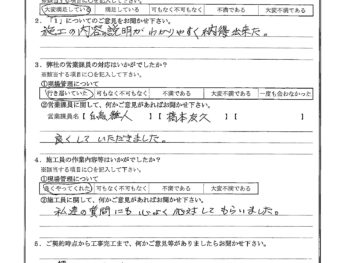 大変満足している 満足している 可も不可もなく 不満である 大変不満である
2. 「1」についてのご意見をお聞かせ下さい。
施工の内容の説明がわかりやすく納得出来た。
3. 弊社の営業課員の対応はいかがでしたか?
※該当する項目に○を記入して下さい。
①現場管理について
行き届いていた 可も不可もなく 不満である 大変不満である 一度も会わなかった
②営業課員に関して、何かご意見があればお聞かせ下さい。
営業課員名 【 白鳥雅人 】 【 橋本友久 】 【 】
良くしていただきました。
4. 施工員の作業内容等はいかがでしたか?
※該当する項目に○を記入して下さい。
①現場管理について
良くやってくれた 可も不可もなく 不満である 大変不満である
②施工員に関して、何かご意見があればお聞かせ下さい。
私達の質問にも心よく応対してもらいました。
5. ご契約時点から工事完工まで、何かご意見等がありましたらお聞かせ下さい。